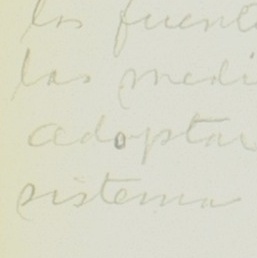 los fuent
las medi
adoptar
sistema